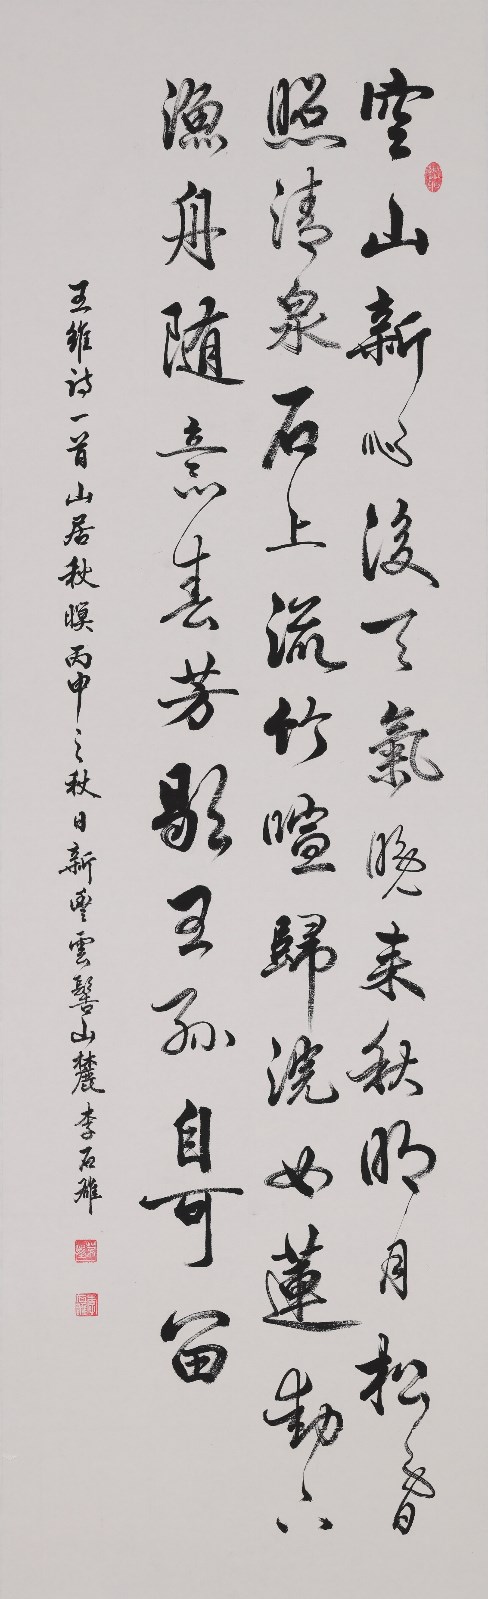 空山新雨後天氣晚来秋明月松間
照清泉石上流竹喧歸浣女蓮動下
漁舟随意春芳歇王孫自可留
王維詩一首山居秋暝丙申之秋日新豐雲髻山麓李石雄